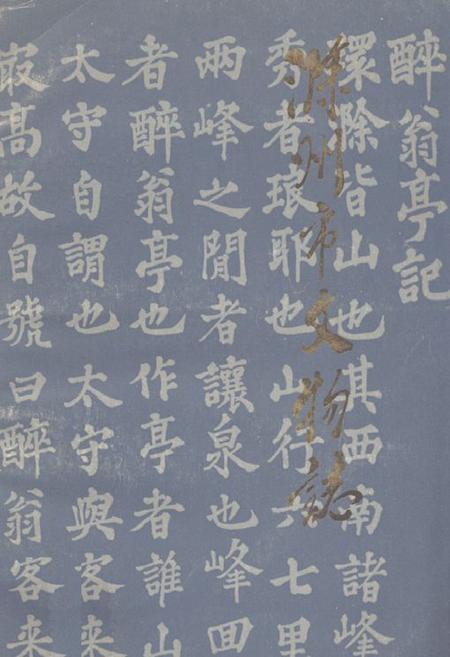 醉翁亭記
環滁皆山也其西南諸峰
滁州市文物誌
秀者琅耶也山行六七里
兩峰之閒者讓泉也峰回
者醉翁亭也作亭者誰山
太守自謂也太守與客來
最高故自號曰醉翁客来